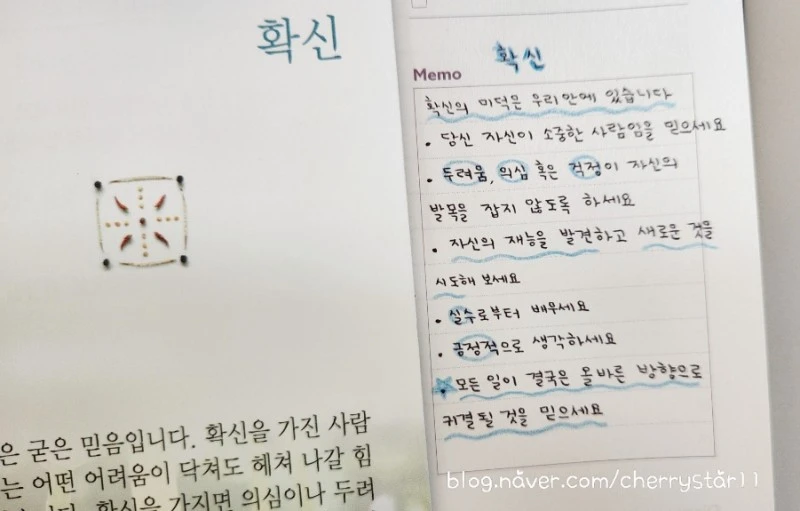 확신
은 굳은 믿음입니다. 확신을 가진 사람
는 어떤 어려움이 닥쳐도 헤쳐 나갈 힘
니다. 확신을 가지면 의심이나 두려
확신
Memo
확신의 미덕은 우리안에 있습니다
• 당신 자신이 소중한 사람임을 믿으세요
• 두려움, 의심 혹은 걱정이 자신의
발목을 잡지 않도록 하세요
• 자신의 재능을 발견하고 새로운 것을
시도해 보세요
• 실수로부터 배우세요
• 긍정적으로 생각하세요
★ 모든 일이 결국은 올바른 방향으로
귀결될 것을 믿으세요
blog.naver.com/cherrystar11